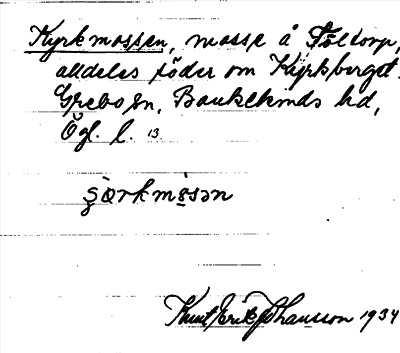 Kyrkmossen, mosse å Fåltorp,
alldeles söder om Kyrkberget.
Grebo sn, Bankekinds hd,
Ögl. l. 13.
Knut Erik Johansson 1934